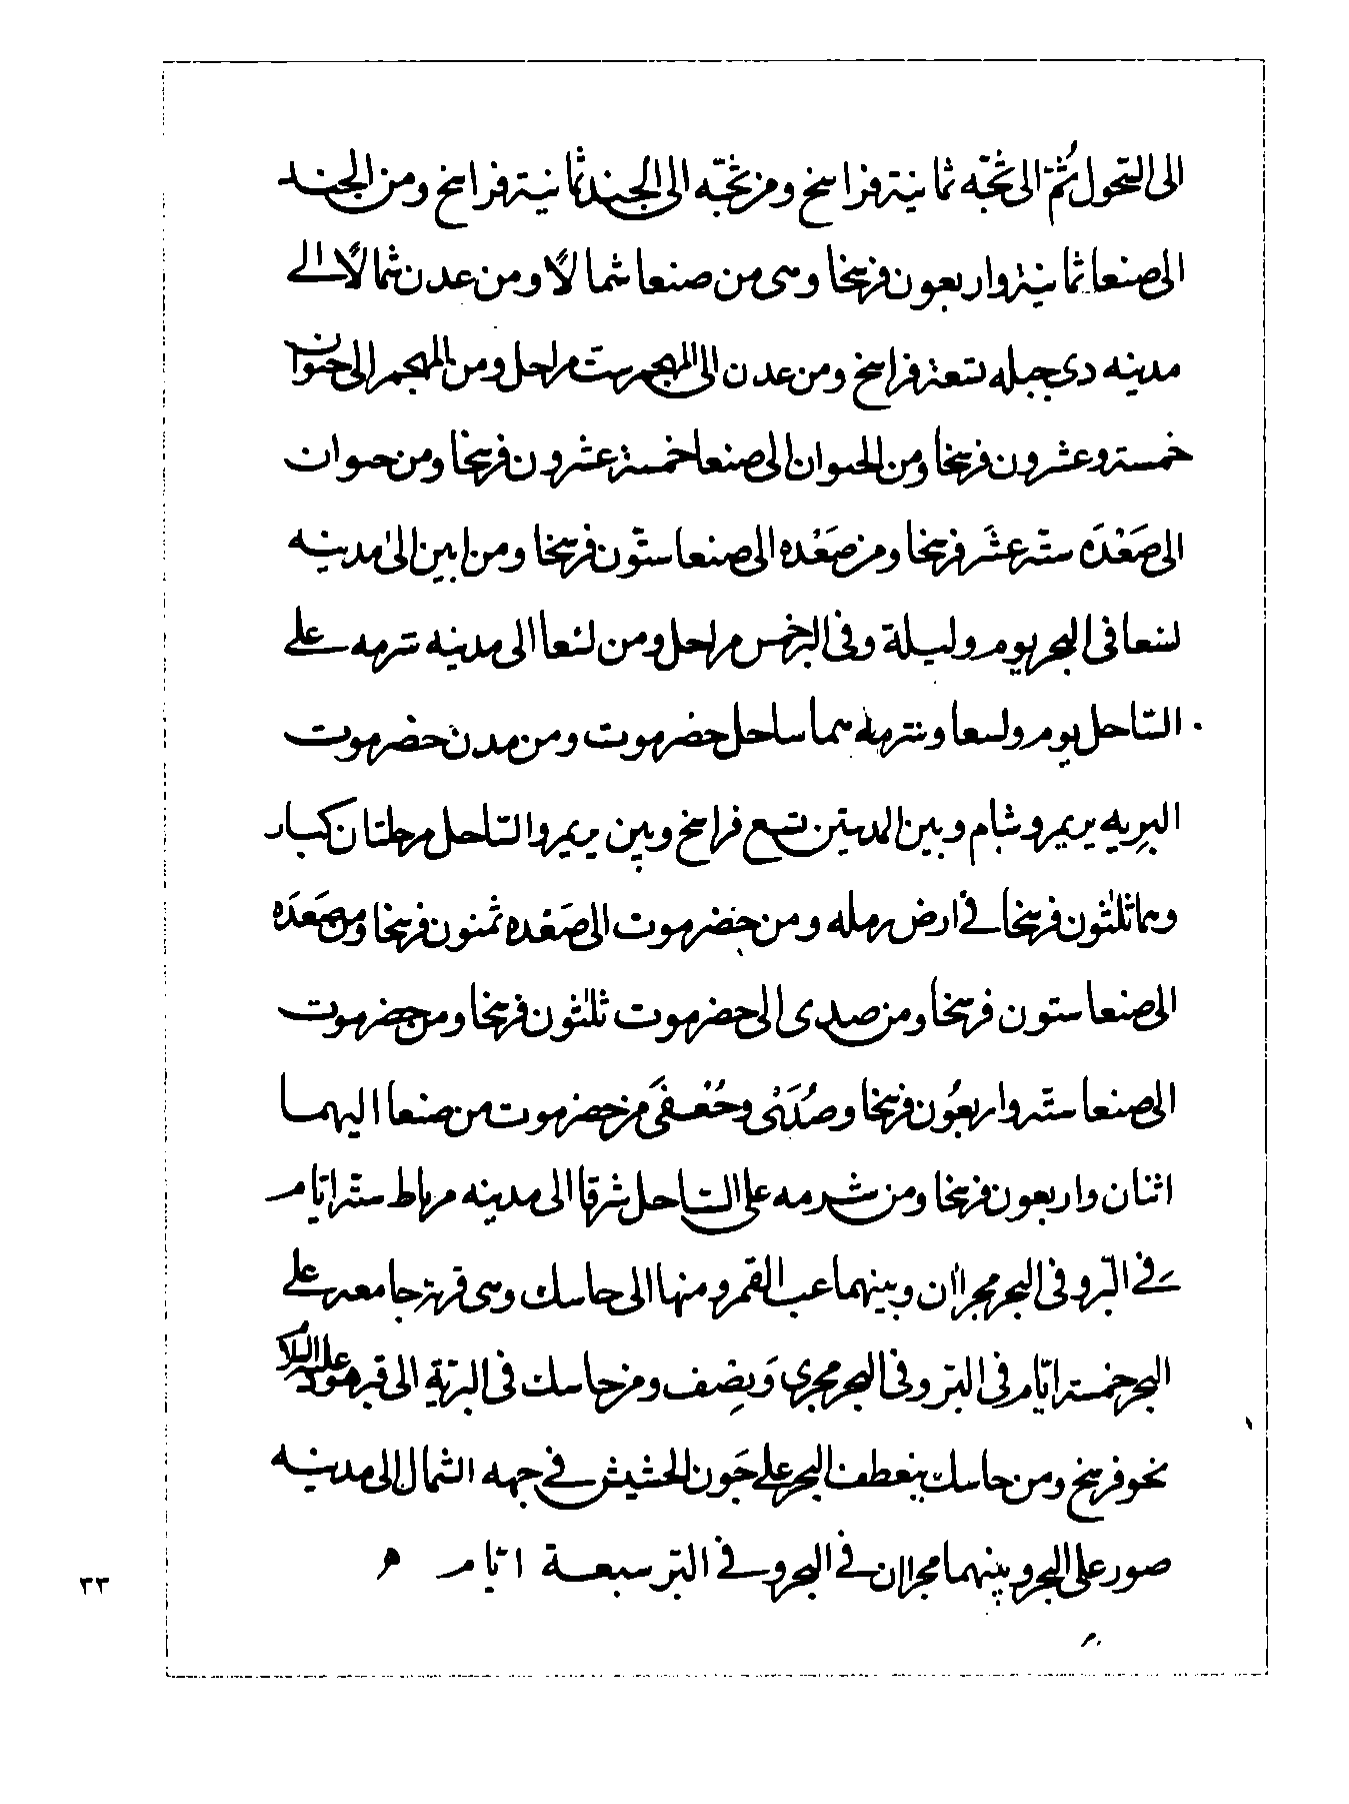 الى التحول ثُمّ الى ثجّه ثمانية فراسخ ومن ثجّه الى الجند ثمانية فراسخ ومن الجند
الى صنعا ثمانية واربعون فرسخا وهى من صنعا شمالاً ومن عدن شمالاً الى
مدينه دى جبله تسعة فراسخ ومن عدن الى المهجم ست مراحل ومن المهجم الى حنوان
خمسة وعشرون فرسخا ومن الحىوان الى صنعا خمسة عشرون فرسخا ومن حىوان
الى صَعْدَه ستة عشَر فرسخا ومن صَعْده الى صنعا ستّون فرسخا ومن ابين الى مدينه
لسعا فى البحر يوم وليلة وفى البر خمس مراحل ومن لسعا الى مدينه شرمه على
السّاحل يوم ولسعا وشرمه هما ساحل حضرموت ومن مدن حضرموت
البريه يريم وشبام وبين المدىتىن تسع فراسخ وبين يريم والساحل مرحلتان كبار
وهما ثلثون فرسخا في ارض رمله ومن حضرموت الى صَعْده ثمنون فرسخا ومن صَعَدَه
الى صنعا ستون فرسخا ومن صدى الى حضرموت ثلثون فرسخا ومن حضرموت
الى صنعا ستّه واربعُون فرسخا وصُدَىْ وحُعْفىَ من حضرموت من صنعا اليهما
اثنان واربعون فرسخا ومن شرمه على السّاحل شرقا الى مدينه مرباط ستّة ايّام
في البرّ وفى البحر مجراان وبينهما عب القمر ومنها الى حاسك وهى قرية جامعه على
البحر خمسة ايّام فى البر وفى البحر مجرى وَنِصف ومن حاسك فى البريّة الى قبر هود عليه السلام
نحو فرسخ ومن حاسك ينعطف البحر على جَون الحشيش في جهه الشمال الى مدينه
صور على البحر وبينهما مجراان في البحر وفي البر سبعة ايّام ه
٣٣